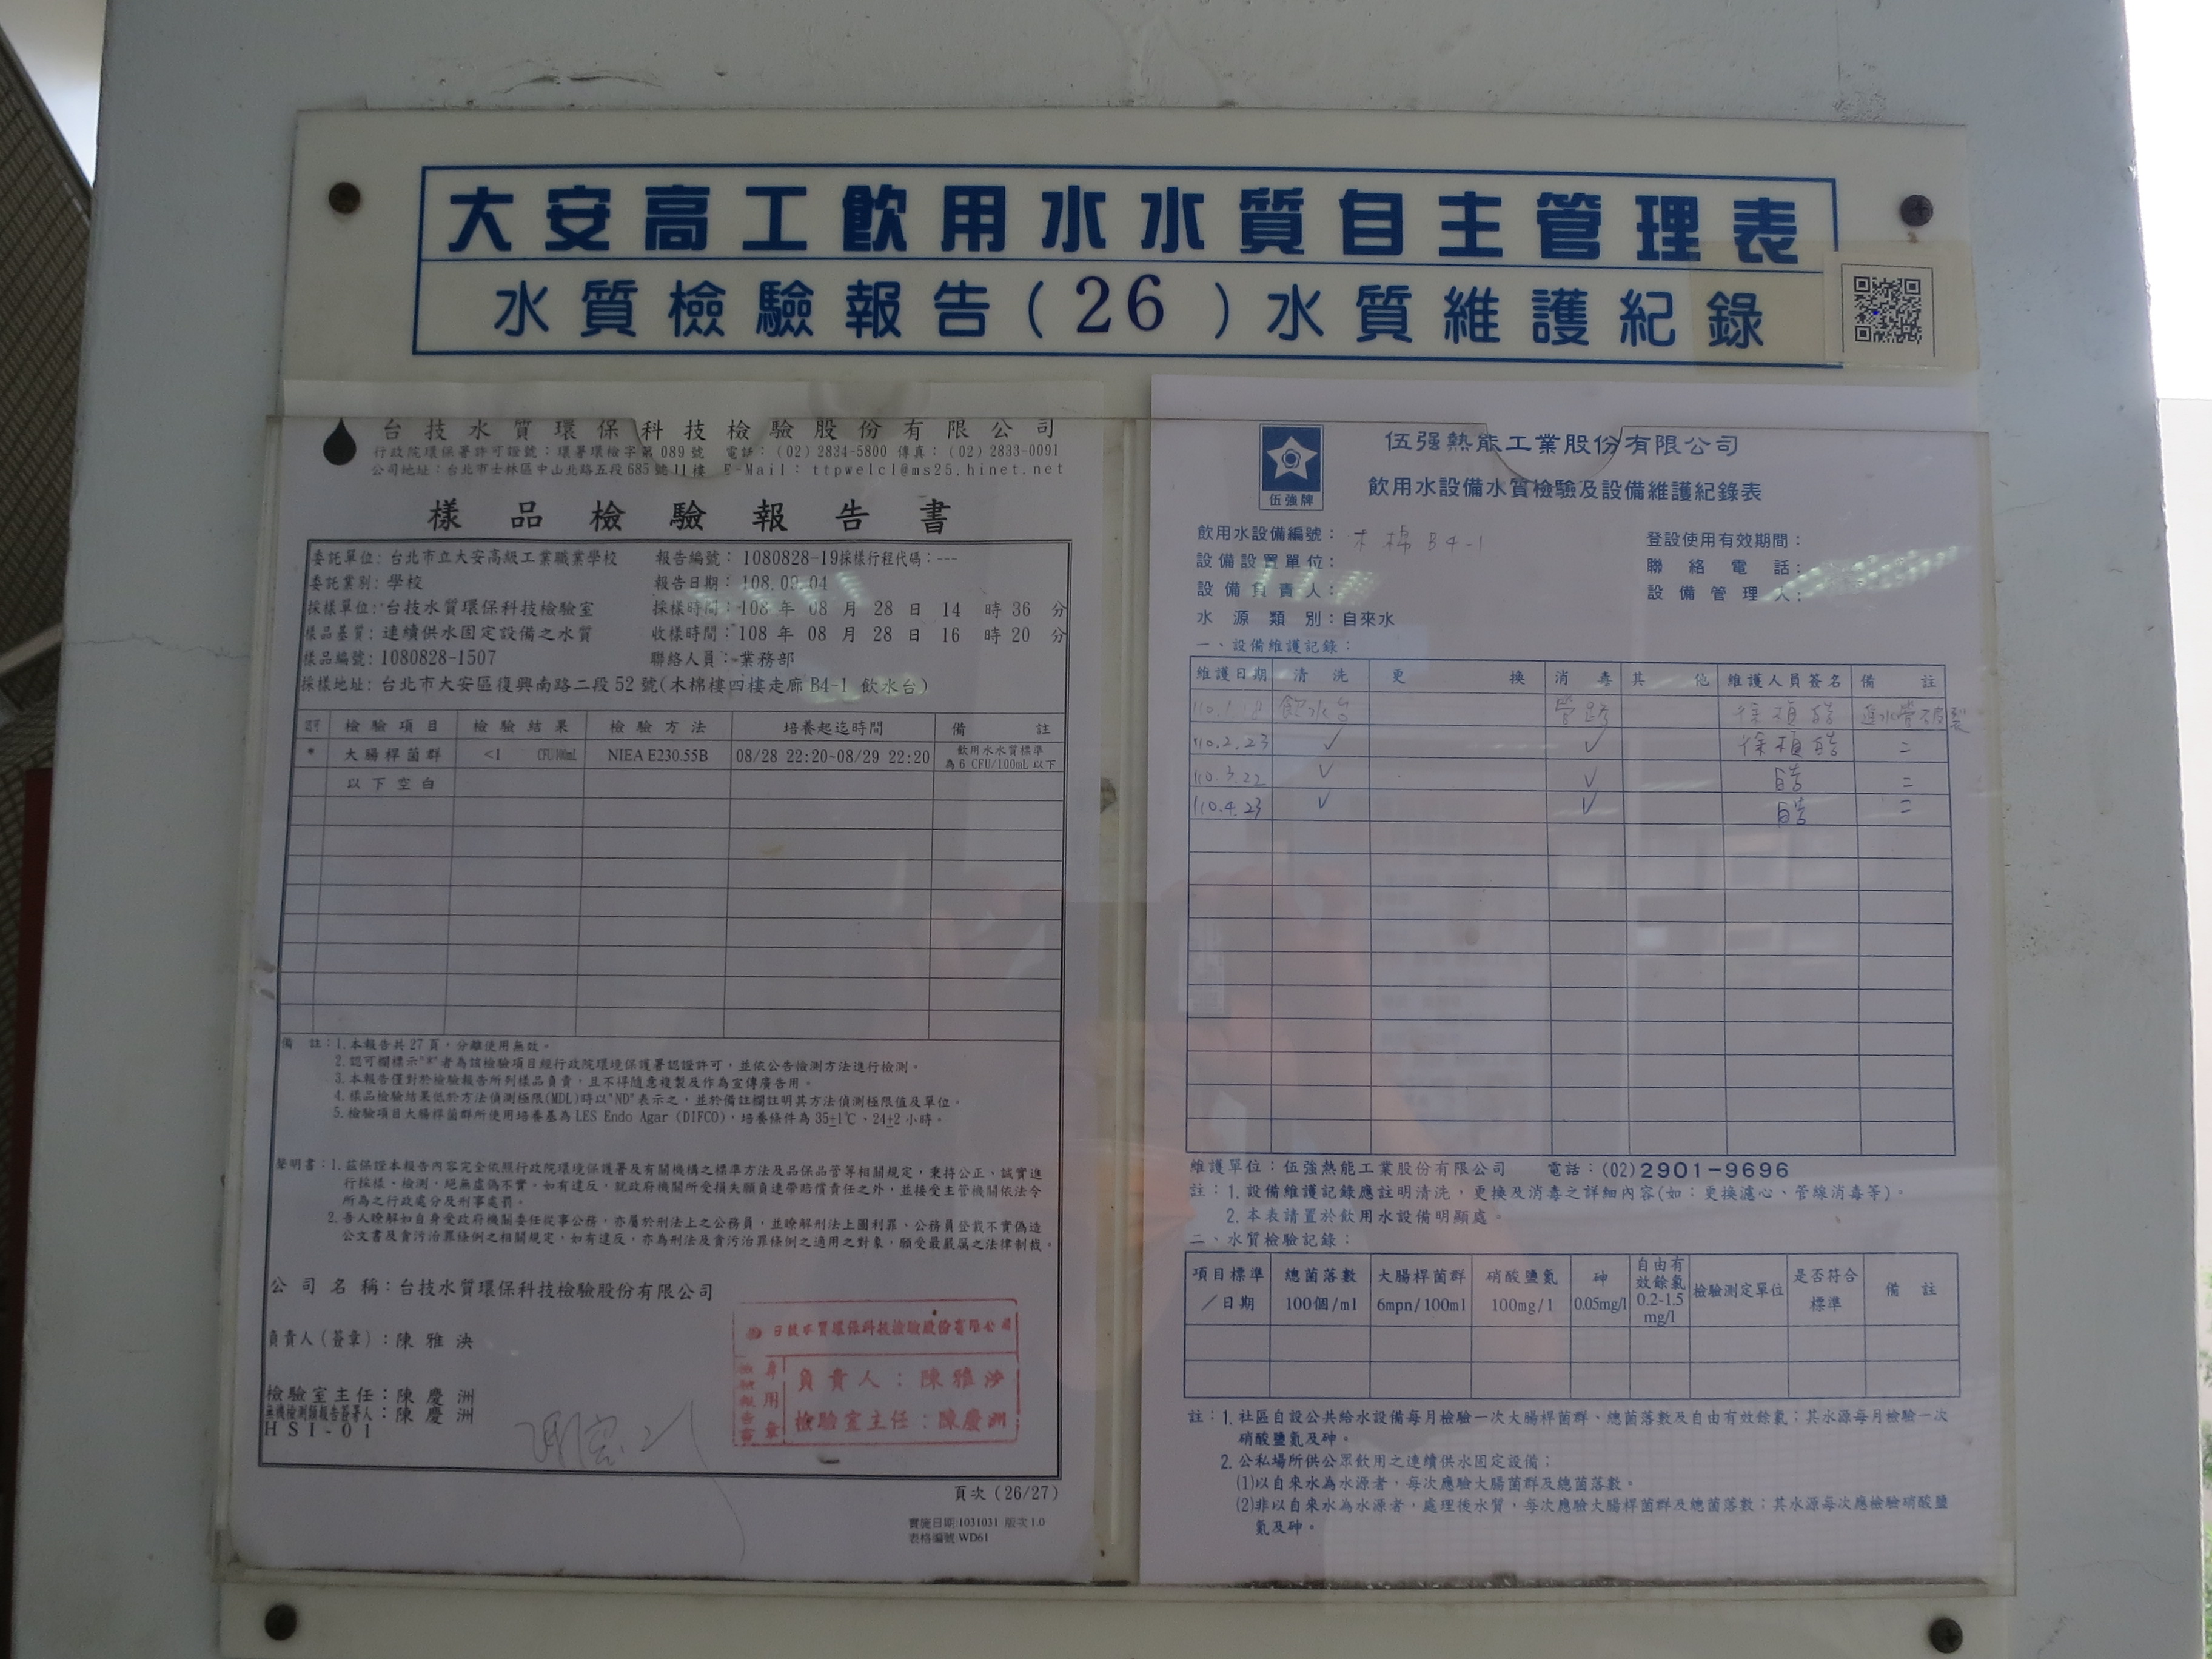 大安高工飲用水水質自主管理表
水質檢驗報告(26)水質維護紀錄
台技水質環保科技檢驗股份有限公司
行政院環保署許可證號：環署環檢字第 089 號 電話：(02) 2834-5800 傳真：(02) 2833-0091
公司地址：台北市士林區中山北路五段 685 號 11 樓 E-Mail： ttpwelcl@ms25.hinet.net
樣品檢驗報告書
委託單位: 台北市立大安高級工業職業學校 報告編號： 1080828-19採樣行程代碼：---
委託業別: 學校 報告日期： 108.09.04
採樣單位: 台技水質環保科技檢驗室 採樣時間：108 年 08 月 28 日 14 時 36 分
樣品基質: 連續供水固定設備之水質 收樣時間：108 年 08 月 28 日 16 時 20 分
樣品編號: 1080828-1507 聯絡人員：業務部
採樣地址: 台北市大安區復興南路二段 52 號(木棉樓四樓走廊 B4-1 飲水台)
認可 檢驗項目 檢驗結果 檢驗方法 培養起迄時間 備註
* 大腸桿菌群 <1 CFU/100mL NIEA E230.55B 08/28 22:20~08/29 22:20 飲用水水質標準
為 6 CFU/100mL 以下
以下空白
備 註：1.本報告共 27 頁，分離使用無效。
2.認可欄標示"*"者為該檢驗項目經行政院環境保護署認證許可，並依公告檢測方法進行檢測。
3.本報告僅對於檢驗報告所列樣品負責，且不得隨意複製及作為宣傳廣告用。
4.樣品檢驗結果低於方法偵測極限(MDL)時以"ND"表示之，並於備註欄註明其方法偵測極限值及單位。
5.檢驗項目大腸桿菌群所使用培養基為 LES Endo Agar (DIFCO)，培養條件為 35±1℃、24±2 小時。
聲明書：1. 茲保證本報告內容完全依照行政院環境保護署及有關機構之標準方法及品保品管等相關規定，秉持公正、誠實進
行採樣、檢測，絕無虛偽不實。如有違反，就政府機關所受損失願負連帶賠償責任之外，並接受主管機關依法令
所為之行政處分及刑事處罰。
2. 吾人瞭解如自身受政府機關委任從事公務，亦屬於刑法上之公務員，並瞭解刑法上圖利罪、公務員登載不實偽造
公文書及貪污治罪條例之相關規定，如有違反，亦為刑法及貪污治罪條例之適用之對象，願受最嚴厲之法律制裁。
公司名稱：台技水質環保科技檢驗股份有限公司
負責人(簽章)：陳雅泱
檢驗室主任：陳慶洲
無機檢測類報告簽署人：陳慶洲
HSI-01
台技水質環保科技檢驗股份有限公司
負責人：陳雅泱
檢驗室主任：陳慶洲
頁次 (26/27)
實施日期:1031031 版次 1.0
表格編號:WD61
伍強牌
伍強熱能工業股份有限公司
飲用水設備水質檢驗及設備維護紀錄表
飲用水設備編號：木棉B4-1 登設使用有效期間：
設備設置單位： 聯絡電話：
設備負責人： 設備管理人：
水源類別：自來水
一、設備維護記錄：
維護日期 清洗 更換 消毒 其他 維護人員簽名 備註
飲水台 管路 進水管破裂
110.2.23 ✓ ✓ =
110.3.22 ✓ ✓ =
110.4.23 ✓ ✓ =
維護單位：伍強熱能工業股份有限公司 電話：(02)2901-9696
註：1. 設備維護記錄應註明清洗，更換及消毒之詳細內容(如：更換濾心、管線消毒等)。
2. 本表請置於飲用水設備明顯處。
二、水質檢驗記錄：
項目標準／日期 總菌落數 100個/ml 大腸桿菌群 6mpn/100ml 硝酸鹽氮 100mg/l 砷 0.05mg/l 自由有效餘氯 0.2-1.5 mg/l 檢驗測定單位 是否符合標準 備註
註：1. 社區自設公共給水設備每月檢驗一次大腸桿菌群、總菌落數及自由有效餘氯；其水源每月檢驗一次
硝酸鹽氮及砷。
2. 公私場所供公眾飲用之連續供水固定設備：
(1)以自來水為水源者，每次應驗大腸菌群及總菌落數。
(2)非以自來水為水源者，處理後水質，每次應驗大腸桿菌群及總菌落數；其水源每次應檢驗硝酸鹽
氮及砷。